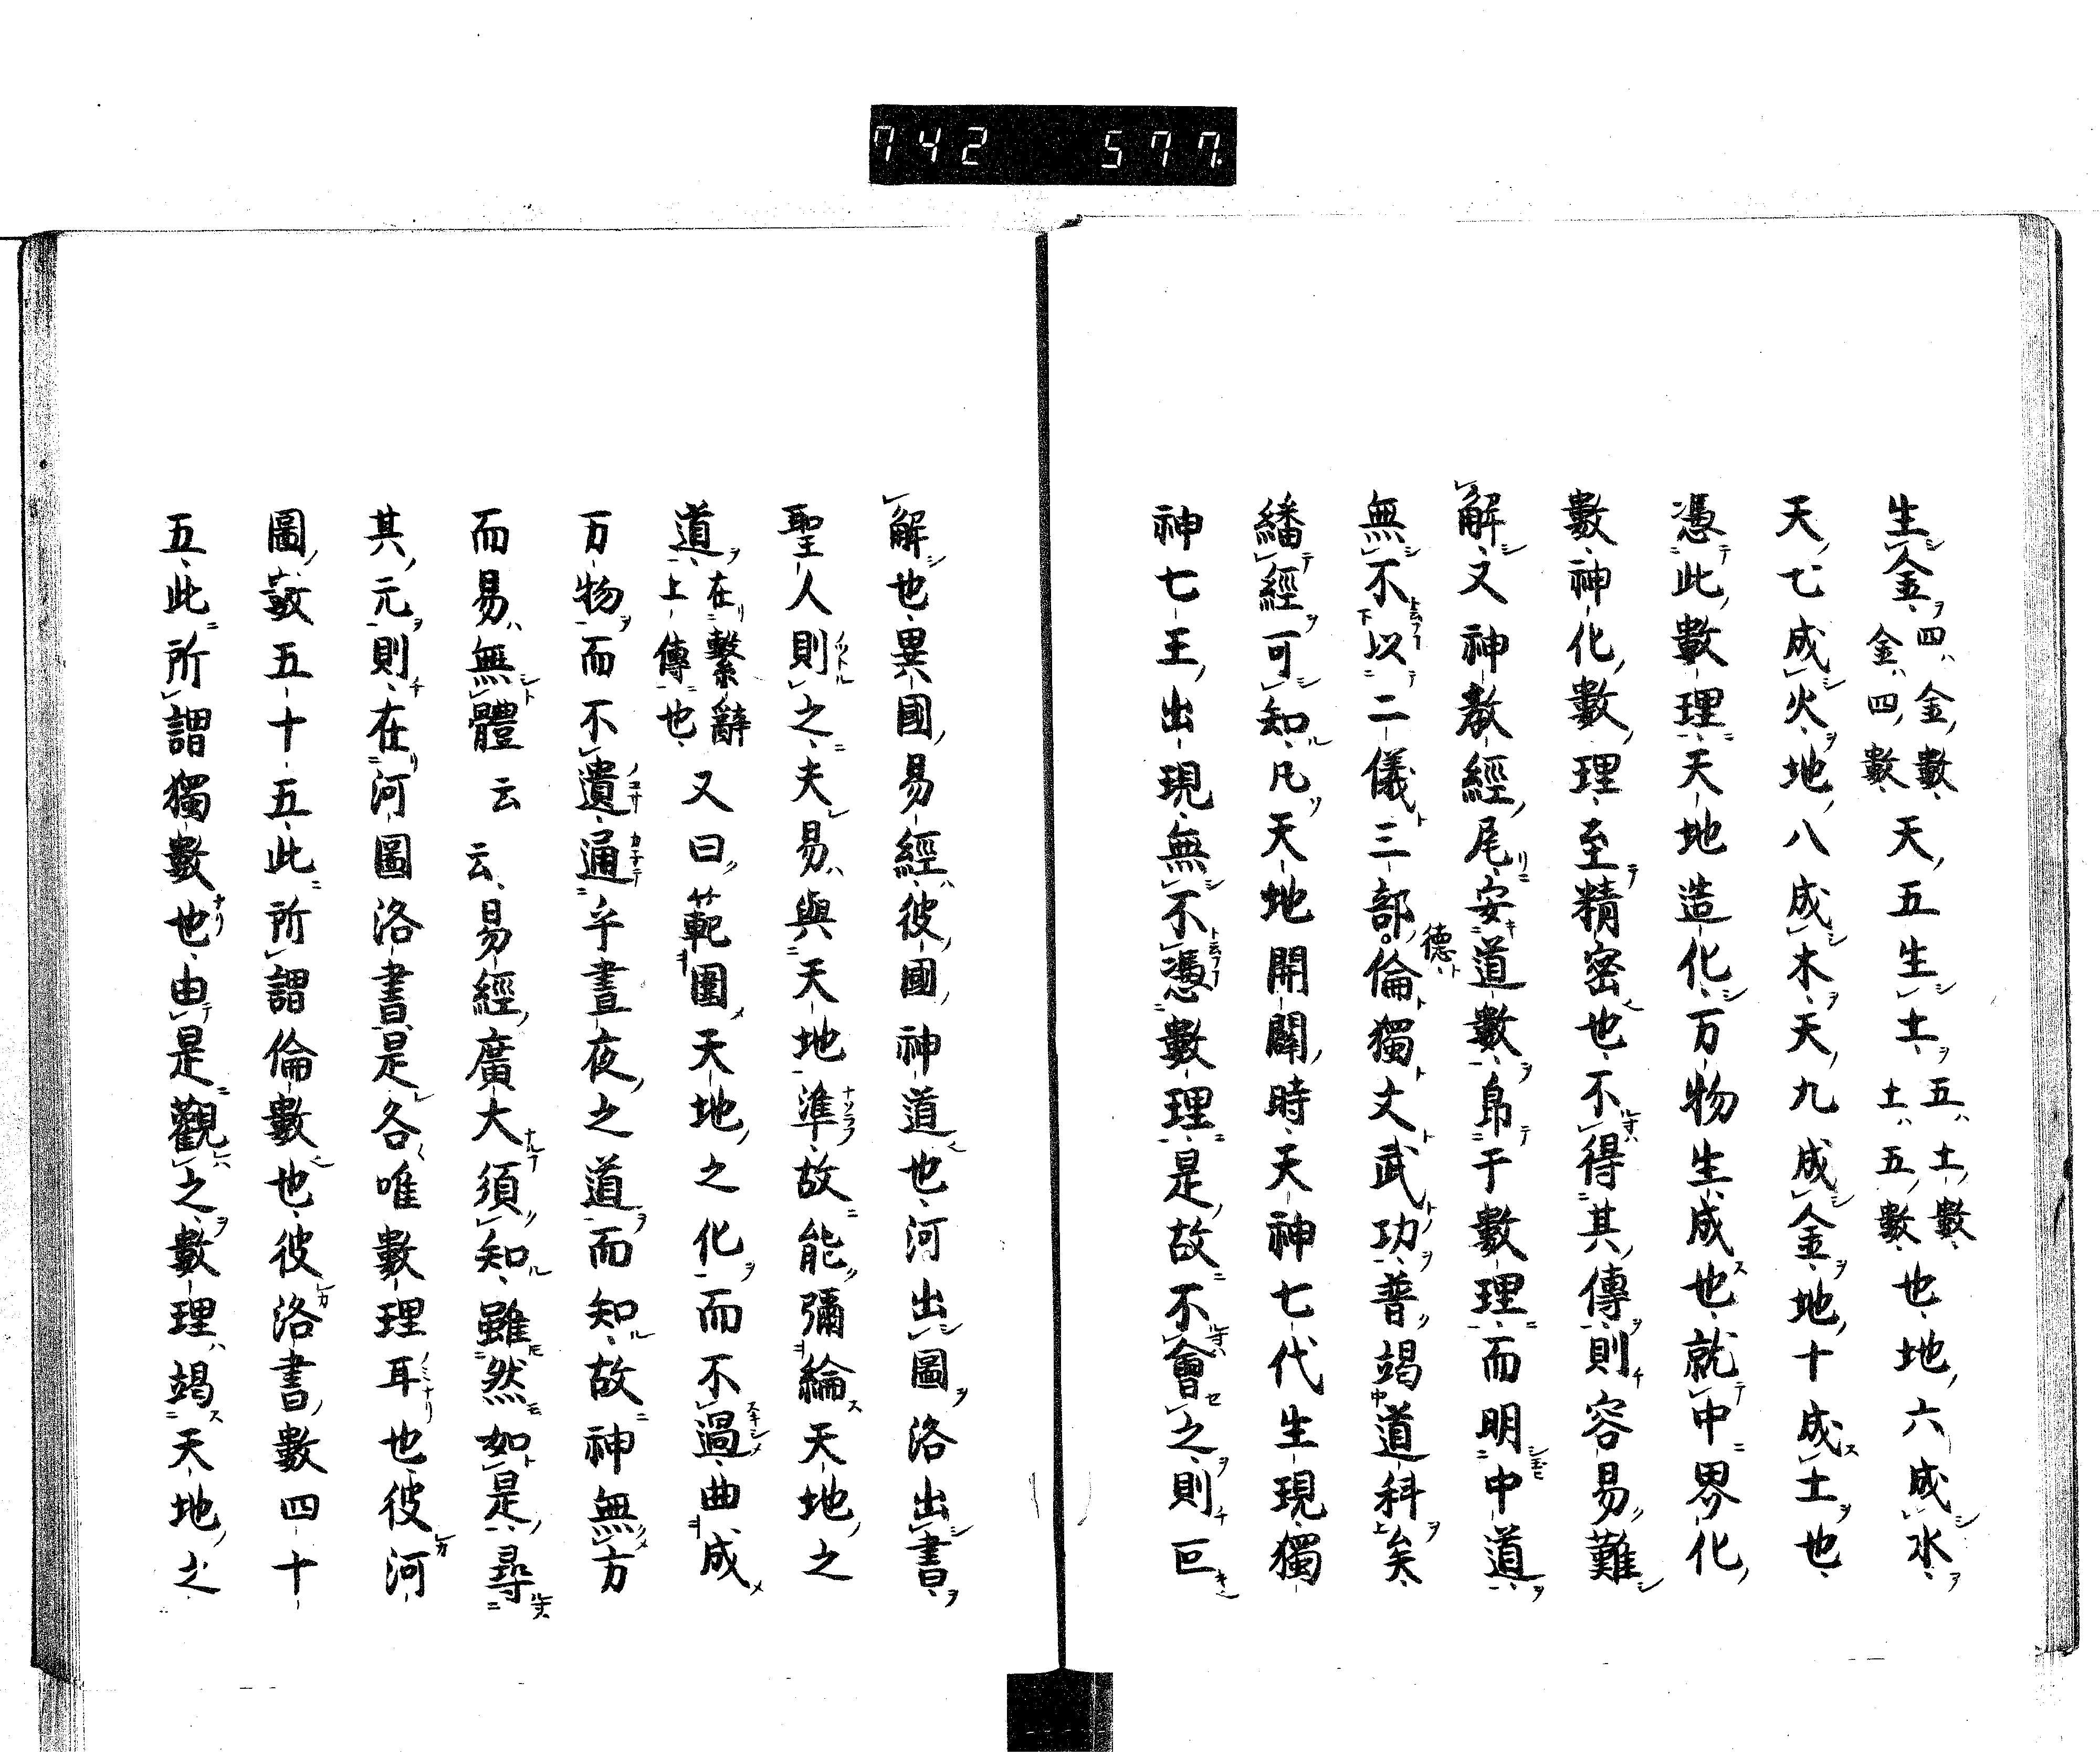 742 577.
生金四金數金四數天五生土五土數土五數也地六成水
天七成火地八成木天九成金地十成土也
憑此數理天地造化万物生成也就中界化
數神化數理至精密也不得其傳則容易難
解又神教經尾安道數帰于數理而明中道
無不以二儀三部德倫獨文武功普竭道科矣
繙經可知凡天地開闢時天神七代生現獨
神七王出現無不憑數理是故不會之則叵
解也異國易經彼國神道也河出圖洛出書
聖人則之夫易與天地準故能彌綸天地之
道在繫辭上傳也又曰範圍天地之化而不過曲成
万物而不遺通乎晝夜之道而知故神無方
而易無體云云易經廣大須知雖然如是尋
其元則在河圖洛書是各唯數理耳也彼河
圖數五十五此所謂倫數也彼洛書數四十
五此所謂獨數也由是觀之數理竭天地之